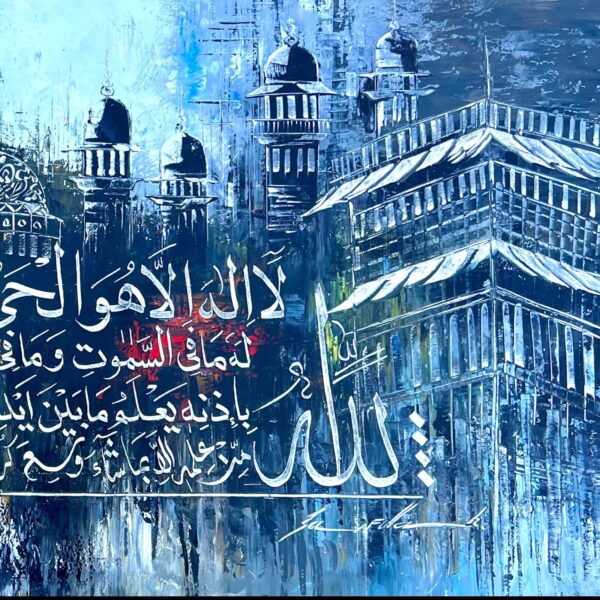 الله
لَا اِلٰهَ اِلَّا هُوَ الْحَیُّ
لَهٗ مَا فِی السَّمٰوٰتِ وَمَا فِی
بِاِذْنِهٖ یَعْلَمُ مَا بَیْنَ
مِّنْ عِلْمِهٖ اِلَّا بِمَا شَآءَ وَسِعَ